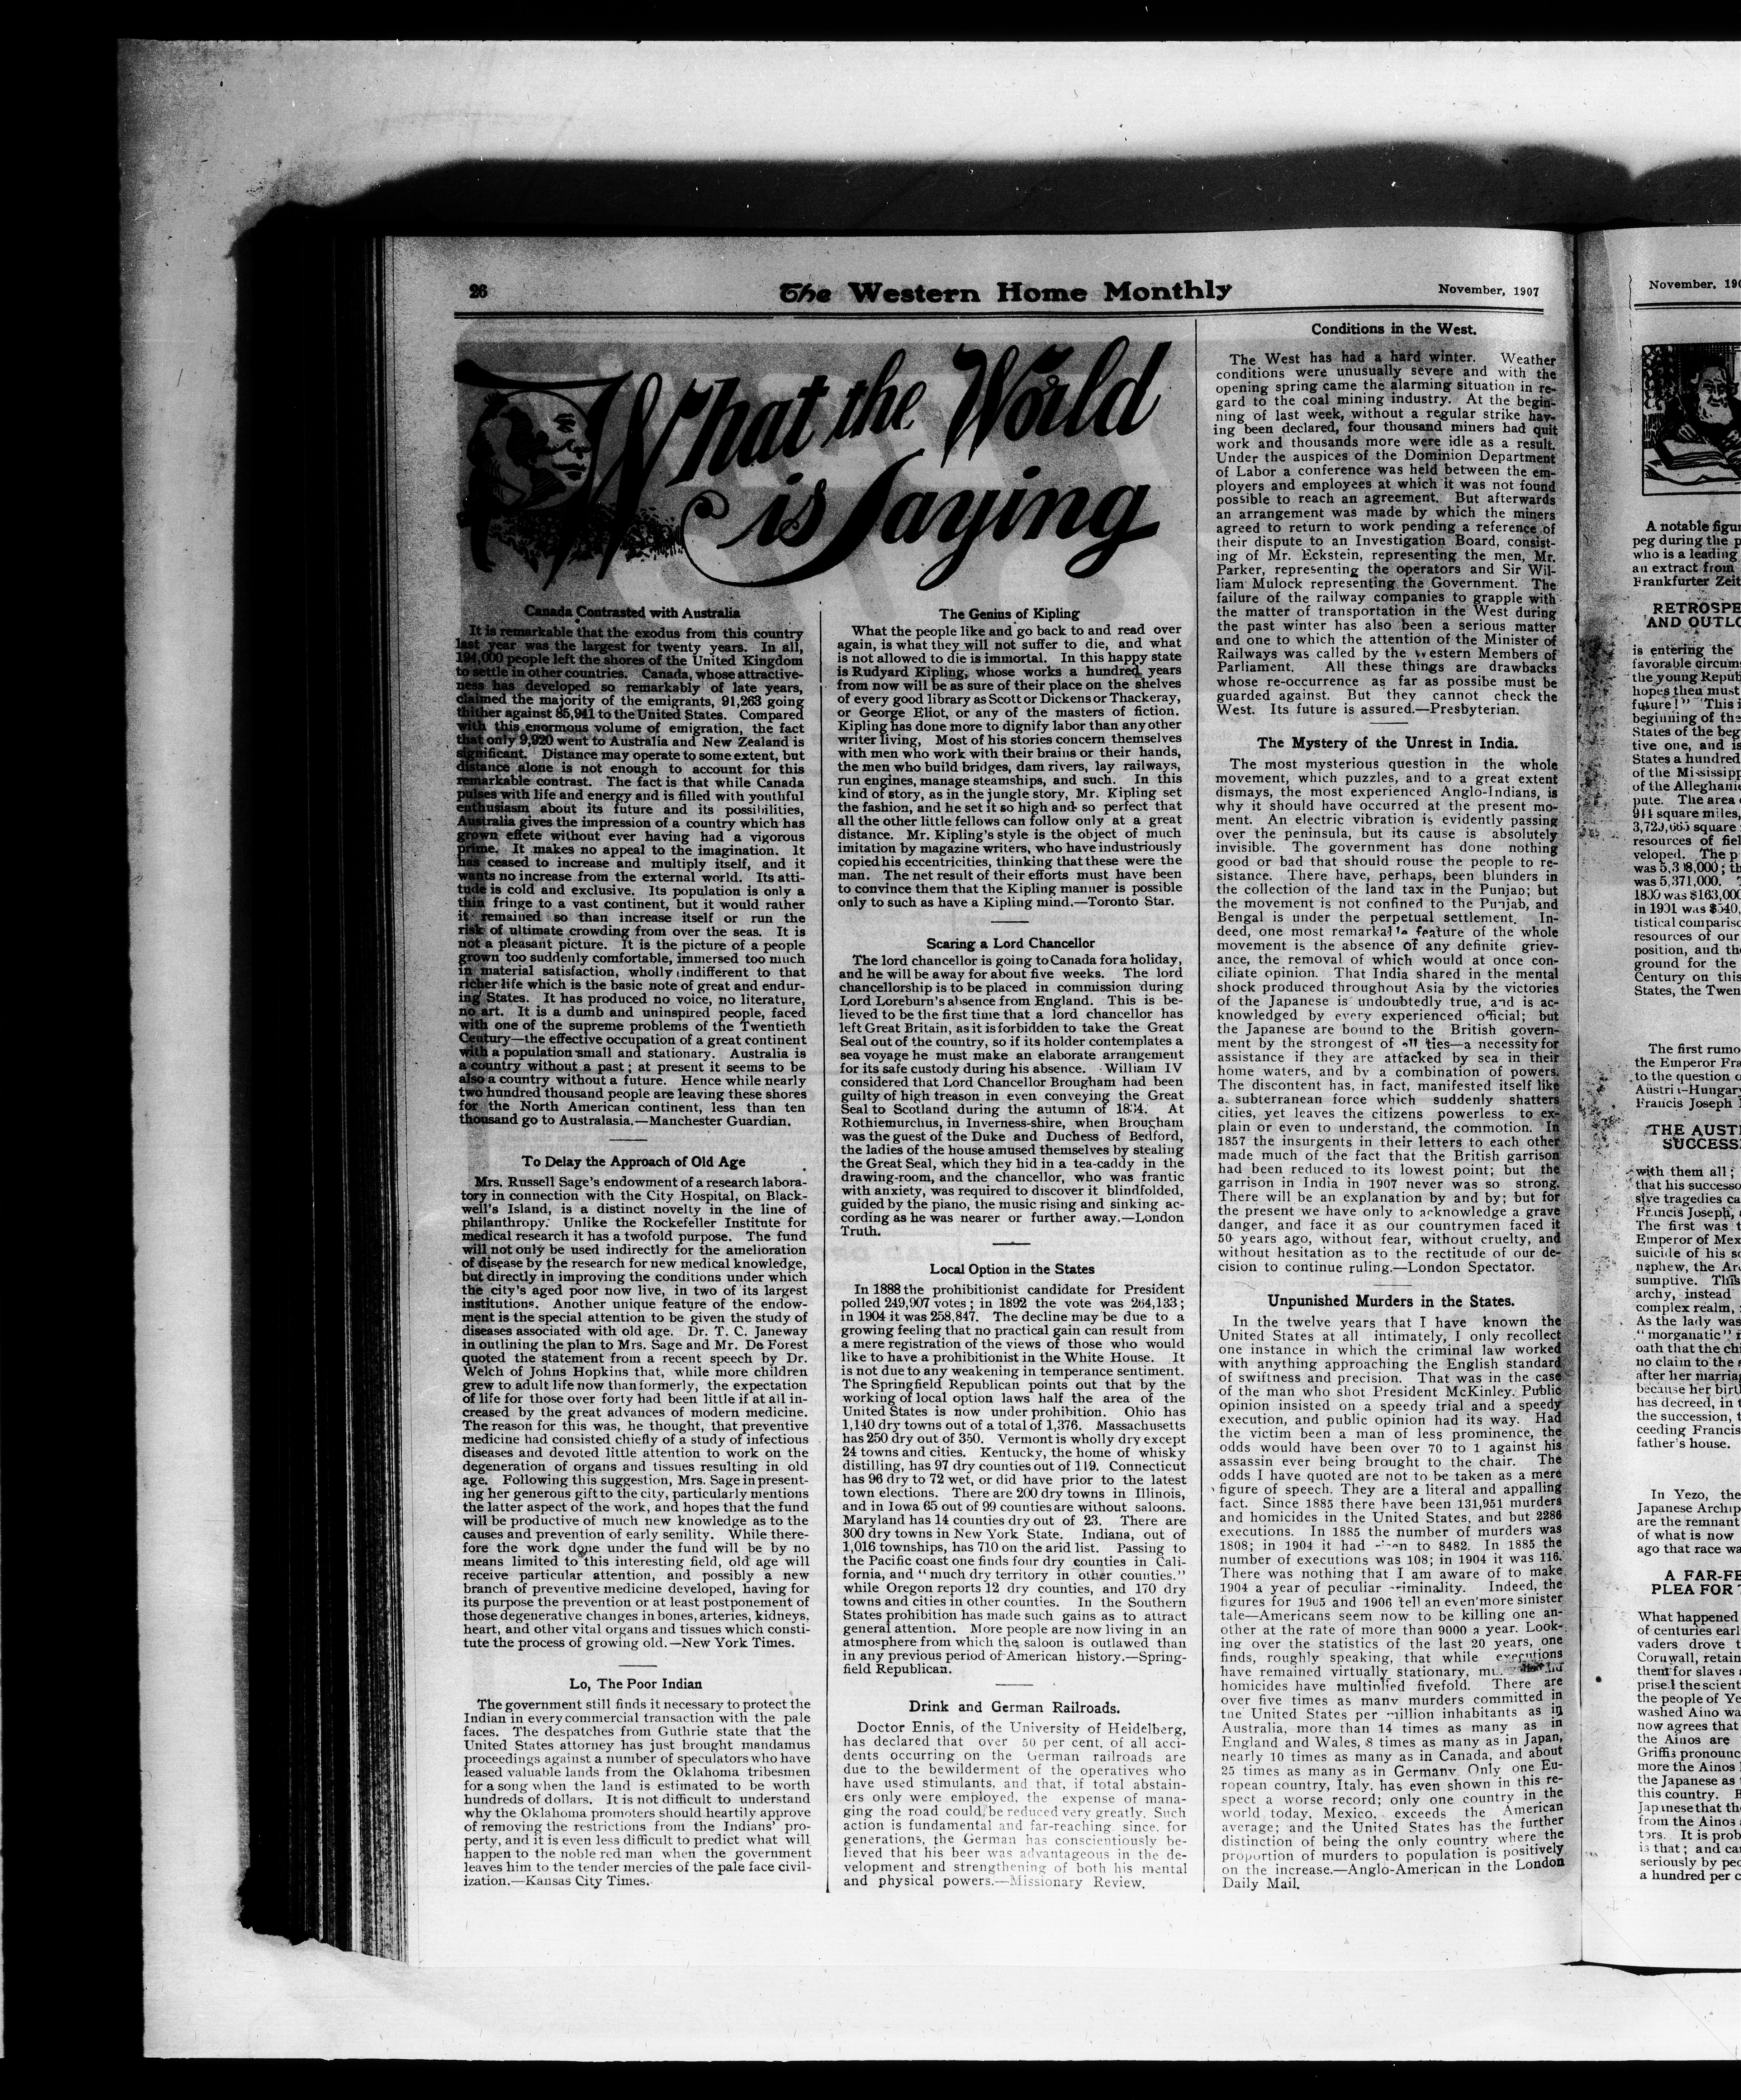 26
The Western Home Monthly
November, 1907
What the World
is Saying
Canada Contrasted with Australia
It is remarkable that the exodus from this country
last year was the largest for twenty years. In all,
194,000 people left the shores of the United Kingdom
to settle in other countries. Canada, whose attractive-
ness has developed so remarkably of late years,
claimed the majority of the emigrants, 91,263 going
thither against 85,941 to the United States. Compared
with this enormous volume of emigration, the fact
that only 9,920 went to Australia and New Zealand is
significant. Distance may operate to some extent, but
distance alone is not enough to account for this
remarkable contrast. The fact is that while Canada
pulses with life and energy and is filled with youthful
enthusiasm about its future and its possibilities,
Australia gives the impression of a country which has
grown effete without ever having had a vigorous
prime. It makes no appeal to the imagination. It
has ceased to increase and multiply itself, and it
wants no increase from the external world. Its atti-
tude is cold and exclusive. Its population is only a
thin fringe to a vast continent, but it would rather
it remained so than increase itself or run the
risk of ultimate crowding from over the seas. It is
not a pleasant picture. It is the picture of a people
grown too suddenly comfortable, immersed too much
in material satisfaction, wholly indifferent to that
richer life which is the basic note of great and endur-
ing States. It has produced no voice, no literature,
no art. It is a dumb and uninspired people, faced
with one of the supreme problems of the Twentieth
Century—the effective occupation of a great continent
with a population small and stationary. Australia is
a country without a past; at present it seems to be
also a country without a future. Hence while nearly
two hundred thousand people are leaving these shores
for the North American continent, less than ten
thousand go to Australasia.—Manchester Guardian.
To Delay the Approach of Old Age
Mrs. Russell Sage's endowment of a research labora-
tory in connection with the City Hospital, on Black-
well's Island, is a distinct novelty in the line of
philanthropy. Unlike the Rockefeller Institute for
medical research it has a twofold purpose. The fund
will not only be used indirectly for the amelioration
of disease by the research for new medical knowledge,
but directly in improving the conditions under which
the city's aged poor now live, in two of its largest
institutions. Another unique feature of the endow-
ment is the special attention to be given the study of
diseases associated with old age. Dr. T. C. Janeway
in outlining the plan to Mrs. Sage and Mr. De Forest
quoted the statement from a recent speech by Dr.
Welch of Johns Hopkins that, while more children
grew to adult life now than formerly, the expectation
of life for those over forty had been little if at all in-
creased by the great advances of modern medicine.
The reason for this was, he thought, that preventive
medicine had consisted chiefly of a study of infectious
diseases and devoted little attention to work on the
degeneration of organs and tissues resulting in old
age. Following this suggestion, Mrs. Sage in present-
ing her generous gift to the city, particularly mentions
the latter aspect of the work, and hopes that the fund
will be productive of much new knowledge as to the
causes and prevention of early senility. While there-
fore the work done under the fund will be by no
means limited to this interesting field, old age will
receive particular attention, and possibly a new
branch of preventive medicine developed, having for
its purpose the prevention or at least postponement of
those degenerative changes in bones, arteries, kidneys,
heart, and other vital organs and tissues which consti-
tute the process of growing old.—New York Times.
Lo, The Poor Indian
The government still finds it necessary to protect the
Indian in every commercial transaction with the pale
faces. The despatches from Guthrie state that the
United States attorney has just brought mandamus
proceedings against a number of speculators who have
leased valuable lands from the Oklahoma tribesmen
for a song when the land is estimated to be worth
hundreds of dollars. It is not difficult to understand
why the Oklahoma promoters should heartily approve
of removing the restrictions from the Indians' pro-
perty, and it is even less difficult to predict what will
happen to the noble red man when the government
leaves him to the tender mercies of the pale face civil-
ization.—Kansas City Times.
The Genius of Kipling
What the people like and go back to and read over
again, is what they will not suffer to die, and what
is not allowed to die is immortal. In this happy state
is Rudyard Kipling, whose works a hundred years
from now will be as sure of their place on the shelves
of every good library as Scott or Dickens or Thackeray,
or George Eliot, or any of the masters of fiction.
Kipling has done more to dignify labor than any other
writer living, Most of his stories concern themselves
with men who work with their brains or their hands,
the men who build bridges, dam rivers, lay railways,
run engines, manage steamships, and such. In this
kind of story, as in the jungle story, Mr. Kipling set
the fashion, and he set it so high and so perfect that
all the other little fellows can follow only at a great
distance. Mr. Kipling's style is the object of much
imitation by magazine writers, who have industriously
copied his eccentricities, thinking that these were the
man. The net result of their efforts must have been
to convince them that the Kipling manner is possible
only to such as have a Kipling mind.—Toronto Star.
Scaring a Lord Chancellor
The lord chancellor is going to Canada for a holiday,
and he will be away for about five weeks. The lord
chancellorship is to be placed in commission during
Lord Loreburn's absence from England. This is be-
lieved to be the first time that a lord chancellor has
left Great Britain, as it is forbidden to take the Great
Seal out of the country, so if its holder contemplates a
sea voyage he must make an elaborate arrangement
for its safe custody during his absence. William IV
considered that Lord Chancellor Brougham had been
guilty of high treason in even conveying the Great
Seal to Scotland during the autumn of 1834. At
Rothiemurchus, in Inverness-shire, when Brougham
was the guest of the Duke and Duchess of Bedford,
the ladies of the house amused themselves by stealing
the Great Seal, which they hid in a tea-caddy in the
drawing-room, and the chancellor, who was frantic
with anxiety, was required to discover it blindfolded,
guided by the piano, the music rising and sinking ac-
cording as he was nearer or further away.—London
Truth.
Local Option in the States
In 1888 the prohibitionist candidate for President
polled 249,907 votes; in 1892 the vote was 264,133;
in 1904 it was 258,847. The decline may be due to a
growing feeling that no practical gain can result from
a mere registration of the views of those who would
like to have a prohibitionist in the White House. It
is not due to any weakening in temperance sentiment.
The Springfield Republican points out that by the
working of local option laws half the area of the
United States is now under prohibition. Ohio has
1,140 dry towns out of a total of 1,376. Massachusetts
has 250 dry out of 350. Vermont is wholly dry except
24 towns and cities. Kentucky, the home of whisky
distilling, has 97 dry counties out of 119. Connecticut
has 96 dry to 72 wet, or did have prior to the latest
town elections. There are 200 dry towns in Illinois,
and in Iowa 65 out of 99 counties are without saloons.
Maryland has 14 counties dry out of 23. There are
300 dry towns in New York State. Indiana, out of
1,016 townships, has 710 on the arid list. Passing to
the Pacific coast one finds four dry counties in Cali-
fornia, and "much dry territory in other counties."
while Oregon reports 12 dry counties, and 170 dry
towns and cities in other counties. In the Southern
States prohibition has made such gains as to attract
general attention. More people are now living in an
atmosphere from which the saloon is outlawed than
in any previous period of American history.—Spring-
field Republican.
Drink and German Railroads.
Doctor Ennis, of the University of Heidelberg,
has declared that over 50 per cent. of all acci-
dents occurring on the German railroads are
due to the bewilderment of the operatives who
have used stimulants, and that, if total abstain-
ers only were employed, the expense of mana-
ging the road could be reduced very greatly. Such
action is fundamental and far-reaching since, for
generations, the German has conscientiously be-
lieved that his beer was advantageous in the de-
velopment and strengthening of both his mental
and physical powers.—Missionary Review.
Conditions in the West.
The West has had a hard winter. Weather
conditions were unusually severe and with the
opening spring came the alarming situation in re-
gard to the coal mining industry. At the begin-
ning of last week, without a regular strike hav-
ing been declared, four thousand miners had quit
work and thousands more were idle as a result.
Under the auspices of the Dominion Department
of Labor a conference was held between the em-
ployers and employees at which it was not found
possible to reach an agreement. But afterwards
an arrangement was made by which the miners
agreed to return to work pending a reference of
their dispute to an Investigation Board, consist-
ing of Mr. Eckstein, representing the men, Mr.
Parker, representing the operators and Sir Wil-
liam Mulock representing the Government. The
failure of the railway companies to grapple with
the matter of transportation in the West during
the past winter has also been a serious matter
and one to which the attention of the Minister of
Railways was called by the Western Members of
Parliament. All these things are drawbacks
whose re-occurrence as far as possibe must be
guarded against. But they cannot check the
West. Its future is assured.—Presbyterian.
The Mystery of the Unrest in India.
The most mysterious question in the whole
movement, which puzzles, and to a great extent
dismays, the most experienced Anglo-Indians, is
why it should have occurred at the present mo-
ment. An electric vibration is evidently passing
over the peninsula, but its cause is absolutely
invisible. The government has done nothing
good or bad that should rouse the people to re-
sistance. There have, perhaps, been blunders in
the collection of the land tax in the Punjab; but
the movement is not confined to the Punjab, and
Bengal is under the perpetual settlement. In-
deed, one most remarkable feature of the whole
movement is the absence of any definite griev-
ance, the removal of which would at once con-
ciliate opinion. That India shared in the mental
shock produced throughout Asia by the victories
of the Japanese is undoubtedly true, and is ac-
knowledged by every experienced official; but
the Japanese are bound to the British govern-
ment by the strongest of all ties—a necessity for
assistance if they are attacked by sea in their
home waters, and by a combination of powers.
The discontent has, in fact, manifested itself like
a subterranean force which suddenly shatters
cities, yet leaves the citizens powerless to ex-
plain or even to understand, the commotion. In
1857 the insurgents in their letters to each other
made much of the fact that the British garrison
had been reduced to its lowest point; but the
garrison in India in 1907 never was so strong.
There will be an explanation by and by; but for
the present we have only to acknowledge a grave
danger, and face it as our countrymen faced it
50 years ago, without fear, without cruelty, and
without hesitation as to the rectitude of our de-
cision to continue ruling.—London Spectator.
Unpunished Murders in the States.
In the twelve years that I have known the
United States at all intimately, I only recollect
one instance in which the criminal law worked
with anything approaching the English standard
of swiftness and precision. That was in the case
of the man who shot President McKinley. Public
opinion insisted on a speedy trial and a speedy
execution, and public opinion had its way. Had
the victim been a man of less prominence, the
odds would have been over 70 to 1 against his
assassin ever being brought to the chair. The
odds I have quoted are not to be taken as a mere
figure of speech. They are a literal and appalling
fact. Since 1885 there have been 131,951 murders
and homicides in the United States, and but 2286
executions. In 1885 the number of murders was
1808; in 1904 it had risen to 8482. In 1885 the
number of executions was 108; in 1904 it was 116.
There was nothing that I am aware of to make
1904 a year of peculiar criminality. Indeed, the
figures for 1905 and 1906 tell an even more sinister
tale—Americans seem now to be killing one an-
other at the rate of more than 9000 a year. Look-
ing over the statistics of the last 20 years, one
finds, roughly speaking, that while executions
have remained virtually stationary,
homicides have multiplied fivefold. There are
over five times as many murders committed in
the United States per million inhabitants as in
Australia, more than 14 times as many as in
England and Wales, 8 times as many as in Japan,
nearly 10 times as many as in Canada, and about
25 times as many as in Germany. Only one Eu-
ropean country, Italy, has even shown in this re-
spect a worse record; only one country in the
world today, Mexico, exceeds the American
average; and the United States has the further
distinction of being the only country where the
proportion of murders to population is positively
on the increase.—Anglo-American in the London
Daily Mail.
November, 190
A notable figu
peg during the p
who is a leading
an extract from
Frankfurter Zeit
RETROSPE
AND OUTLO
is entering the
favorable circums
the young Repub
hopes then must
future!" This i
beginning of the
States of the beg
tive one, and is
States a hundred
of the Mississipp
of the Alleghanie
pute. The area
911 square miles,
3,729,665 square
resources of fiel
veloped. The p
was 5,308,000; th
was 5,371,000.
1800 was $163,000
in 1901 was $540,
tistical comparis
resources of our
position, and the
ground for the
Century on this
States, the Twen
The first rumo
the Emperor Fra
to the question o
Austri-Hungar
Francis Joseph
THE AUST
SUCCESS
with them all;
that his successo
sive tragedies ca
Francis Joseph,
The first was t
Emperor of Mex
suicide of his s
nephew, the Ar
sumptive. This
archy, instead
complex realm,
As the lady was
"morganatic"
oath that the chi
no claim to the s
after her marria
because her birt
has decreed, in t
the succession, t
ceeding Francis
father's house.
In Yezo, the
Japanese Archip
are the remnant
of what is now
ago that race wa
A FAR-FE
PLEA FOR
What happened
of centuries earl
vaders drove t
Cornwall, retain
them for slaves
prised the scient
the people of Ye
washed Aino wa
now agrees that
the Ainos are
Griffis pronounc
more the Ainos
the Japanese as
this country.
Japanese that the
from the Ainos
tors. It is prob
is that; and can
seriously by peo
a hundred per c